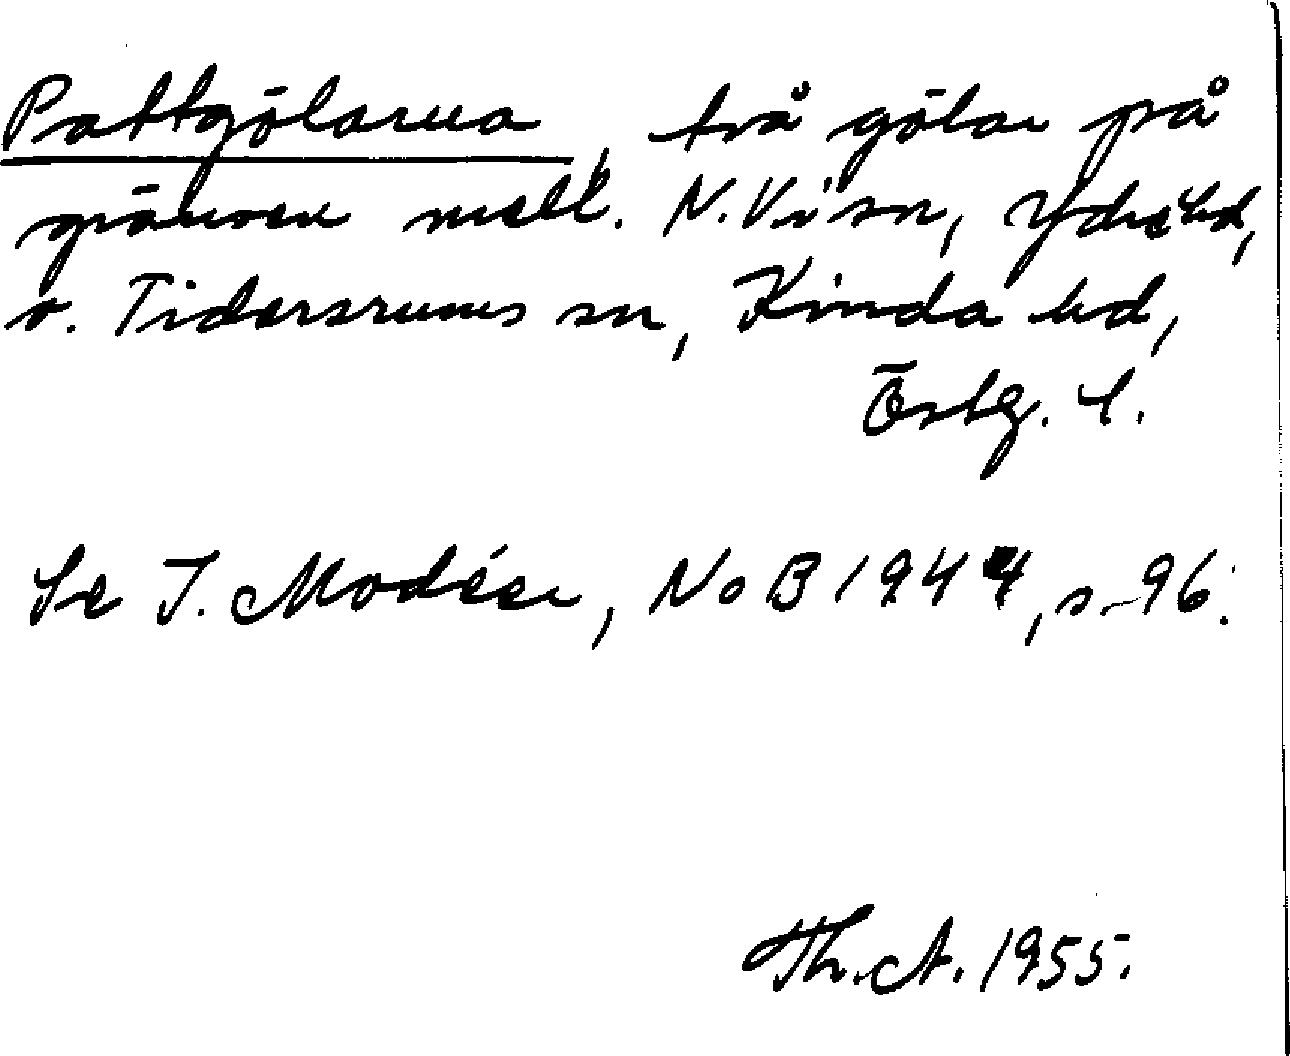 Pattgölarna, två gölar på
gränsen mell. N. Vi sn, Ydre hd,
o. Tidersrums sn, Kinda hd,
Östg. l.
Se I. Modéer, NoB 1944, s. 96.
Th. A. 1955.